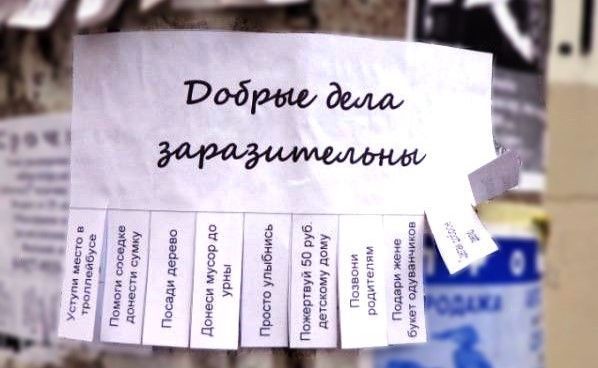 Добрые дела
заразительны
Уступи место в
троллейбусе
Помоги соседке
донести сумку
Посади дерево
Донеси мусор до
урны
Просто улыбнись
Пожертвуй 50 руб.
детскому дому
Позвони
родителям
Подари жене
букет одуванчиков